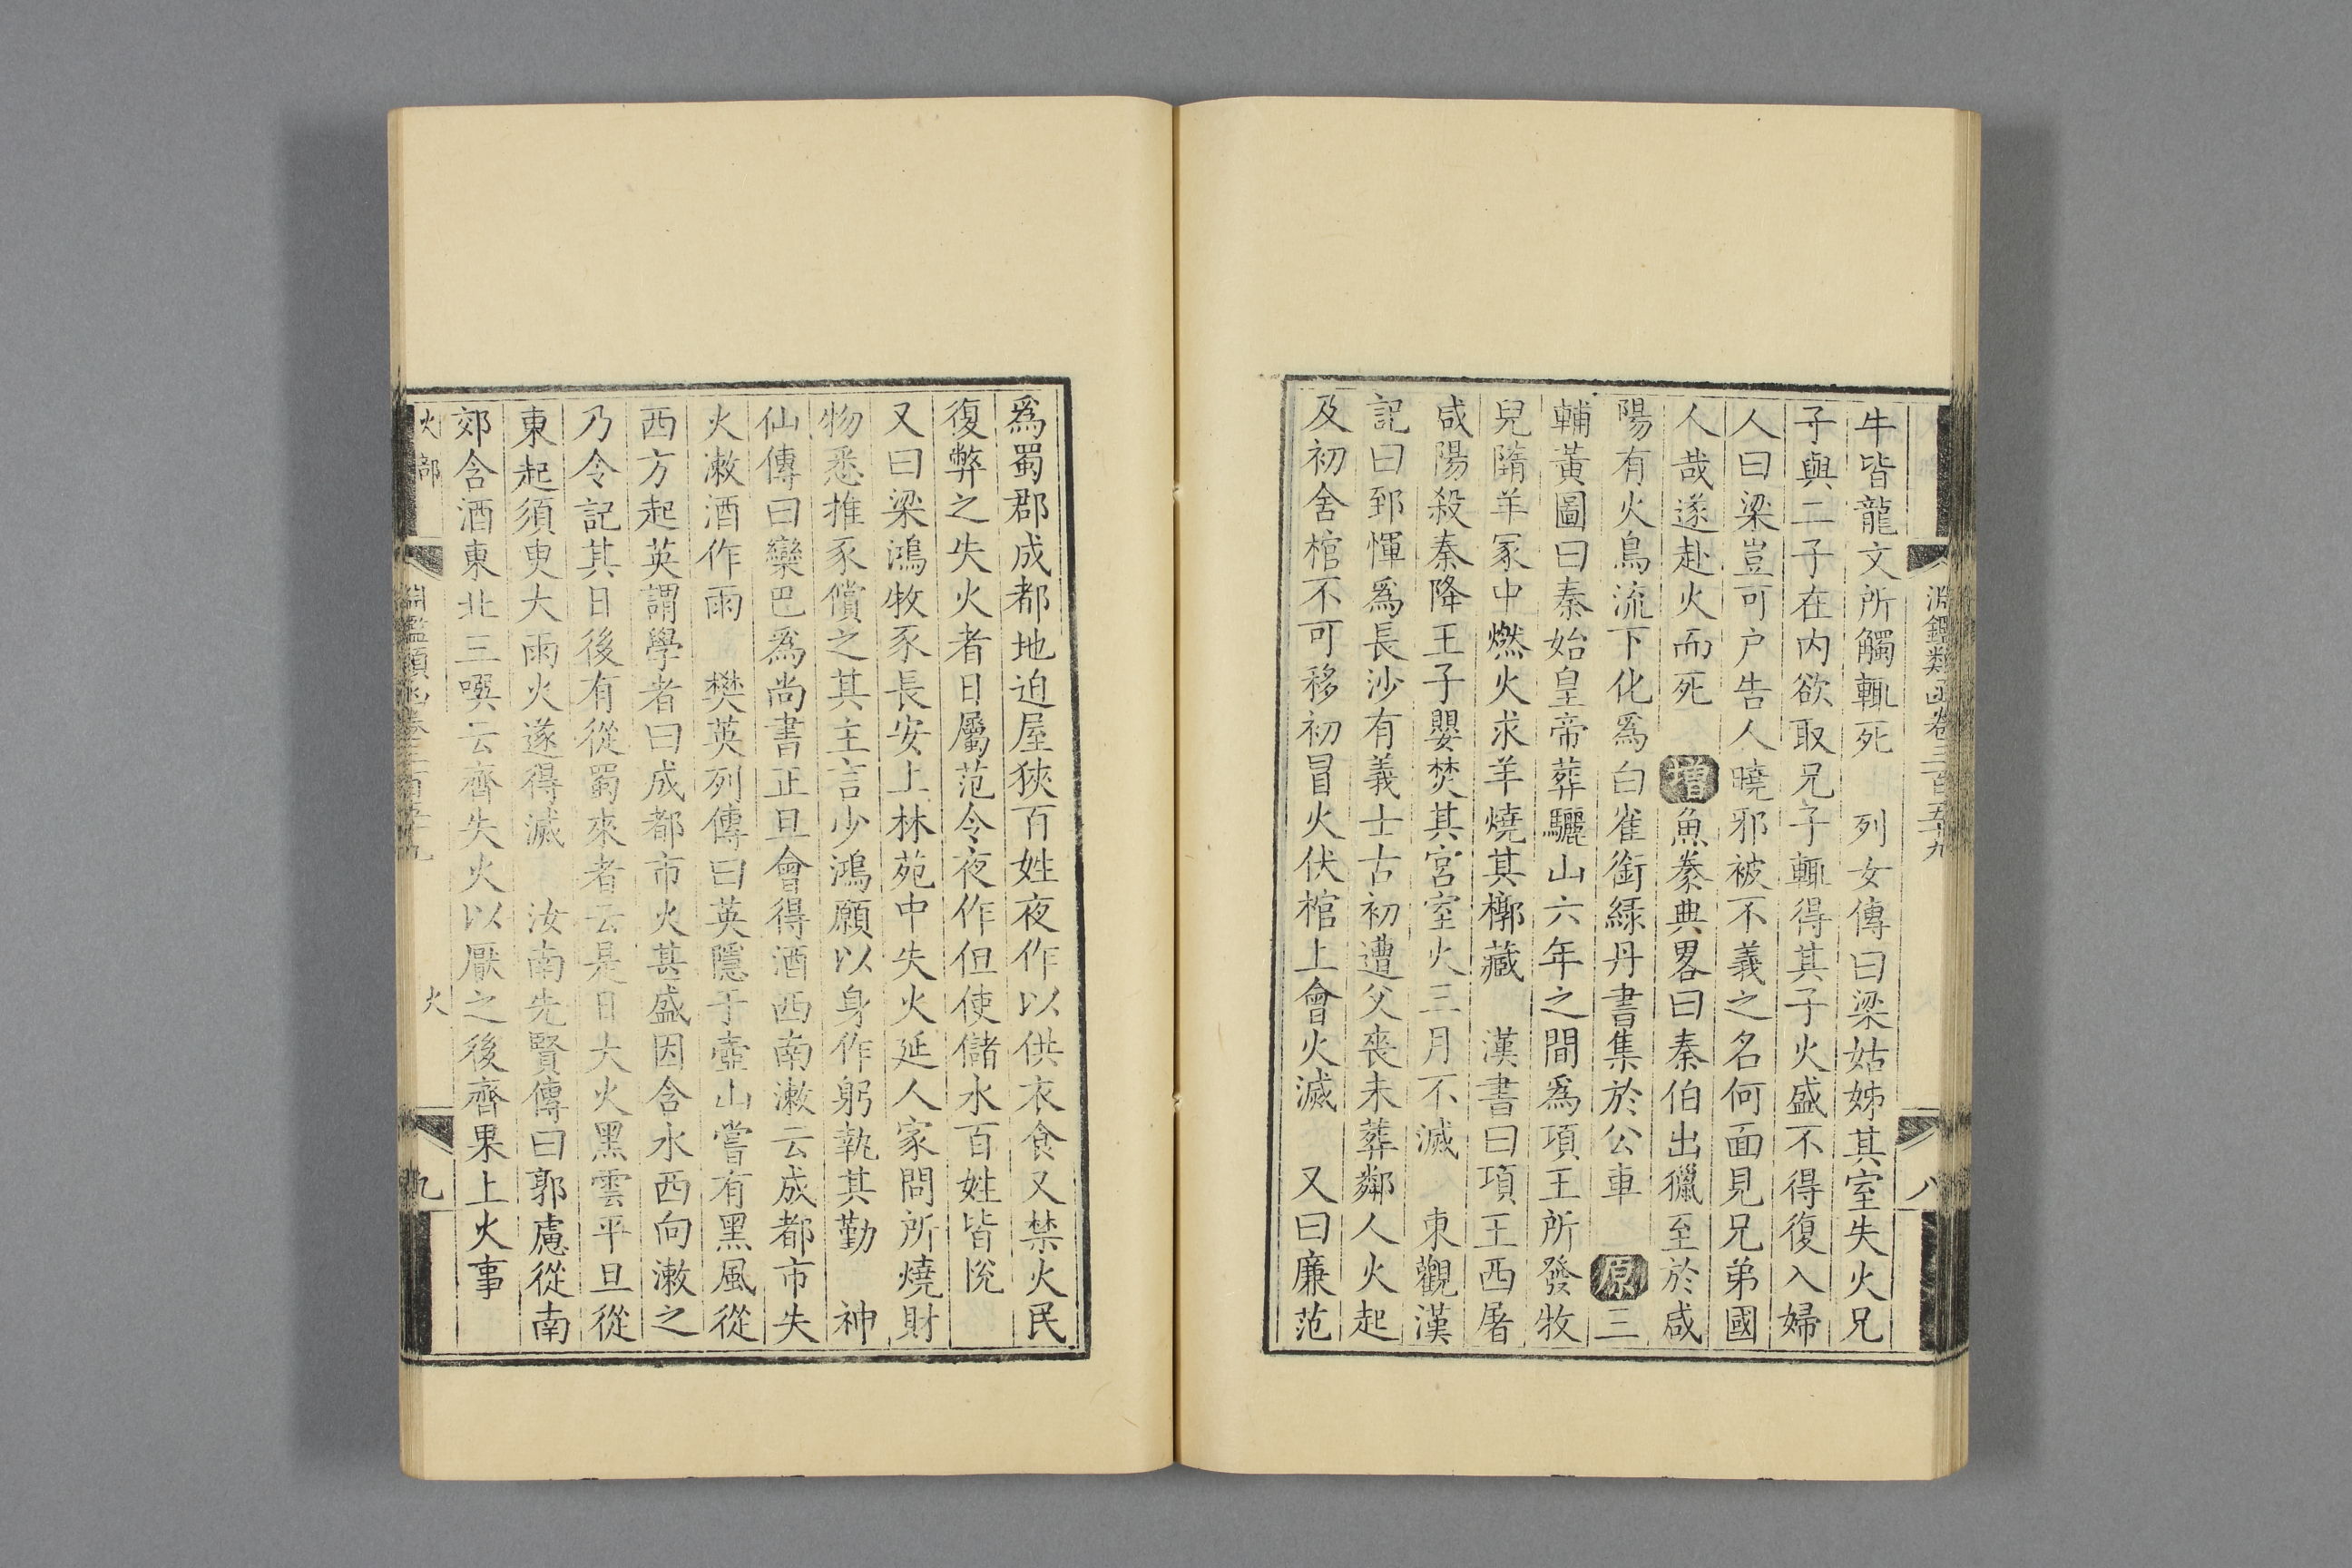 淵鑑類函卷三百五十九
八
牛皆龍文所觸輒死　列女傳曰梁姑姊其室失火兄
子與二子在内欲取兄子輒得其子火盛不得復入婦
人曰梁豈可户告人曉邪被不義之名何面見兄弟國
人哉遂赴火而死　增魚豢典畧曰秦伯出獵至於咸
陽有火鳥流下化爲白雀銜緑丹書集於公車　原三
輔黃圖曰秦始皇帝葬驪山六年之間爲項王所發牧
兒隋羊冢中燃火求羊燒其槨藏　漢書曰項王西屠
咸陽殺秦降王子嬰焚其宮室火三月不滅　東觀漢
記曰郅惲爲長沙有義士古初遭父喪未葬鄰人火起
及初舍棺不可移初冒火伏棺上會火滅　又曰廉范
爲蜀郡成都地迫屋狹百姓夜作以供衣食又禁火民
復弊之失火者日屬范令夜作但使儲水百姓皆悅
又曰梁鴻牧豕長安上林苑中失火延人家問所燒財
物悉推豕償之其主言少鴻願以身作躬執其勤　神
仙傳曰欒巴爲尚書正旦會得酒西南漱云成都市失
火漱酒作雨　樊英列傳曰英隱于壺山嘗有黑風從
西方起英謂學者曰成都市火甚盛因含水西向漱之
乃令記其日後有從蜀來者云是日大火黑雲平旦從
東起須臾大雨火遂得滅　汝南先賢傳曰郭憲從南
郊含酒東北三噀云齊失火以厭之後齊果上火事
火部
淵鑑類函卷三百五十九
火
九